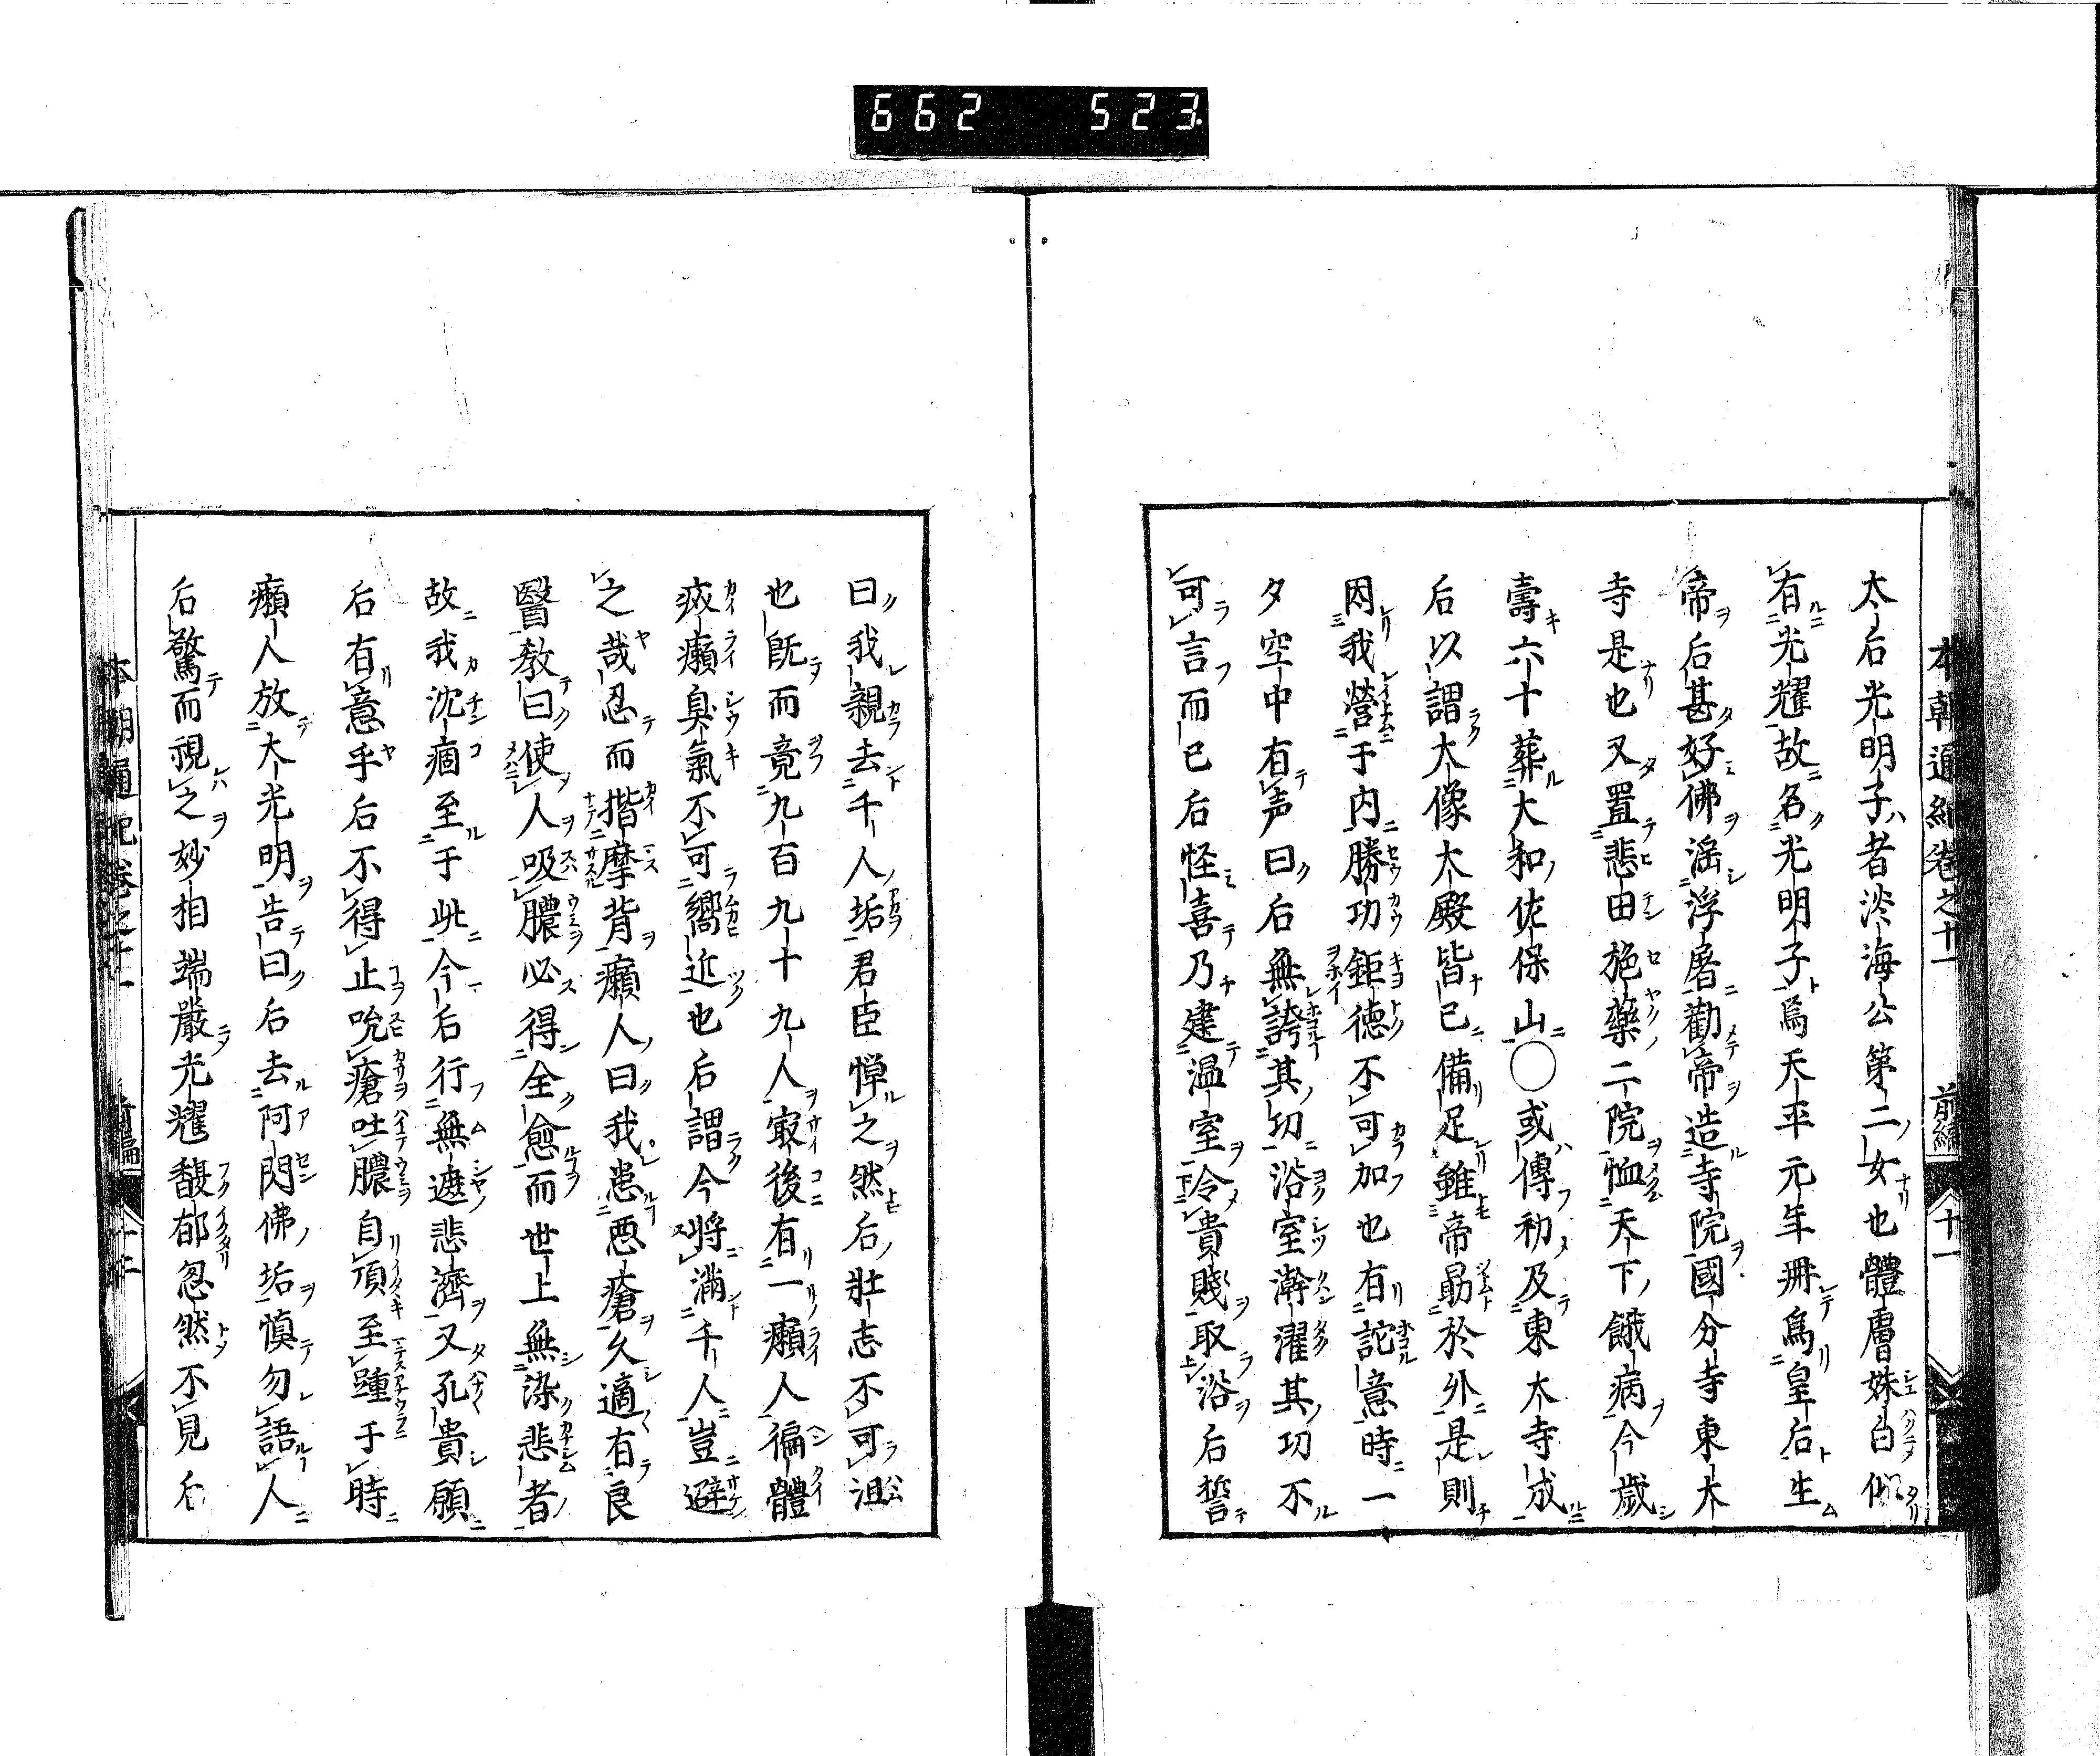 662 523
本朝通紀卷之十一 前編 十一
太后光明子者淡海公第二女也體膚姝白
有光耀故名光明子爲天平元年冊爲皇后生
帝后甚好佛滛浮屠勸帝造寺院國分寺東大
寺是也又置悲田施藥二院恤天下餓病今歲
壽六十葬大和佐保山〇或傳初及東大寺成
后以謂大像大殿皆已備足雖帝勗於外是則
因我營于内勝功鉅徳不可加也有詑意時一
夕空中有声曰后無誇其功浴室澣濯其功不
可言而已后怪喜乃建温室令貴賤取浴后誓
曰我親去千人垢君臣憚之然后壯志不可沮
也既而竟九百九十九人最後有一癩人徧體
疥癩臭氣不可嚮近也后謂今將滿千人豈避
之哉忍而揩摩背癩人曰我患悪瘡久適有良
醫教曰使人吸膿必得全愈而世上無深悲者
故我沈痼至于此今后行無遮悲濟又孔貴願
后有意乎后不得止吮瘡吐膿自頂至踵于時
癩人放大光明告曰后去阿閦佛垢慎勿語人
后驚而視之妙相端嚴光耀馥郁忽然不見后
本朝通紀卷之十一 前編 十二